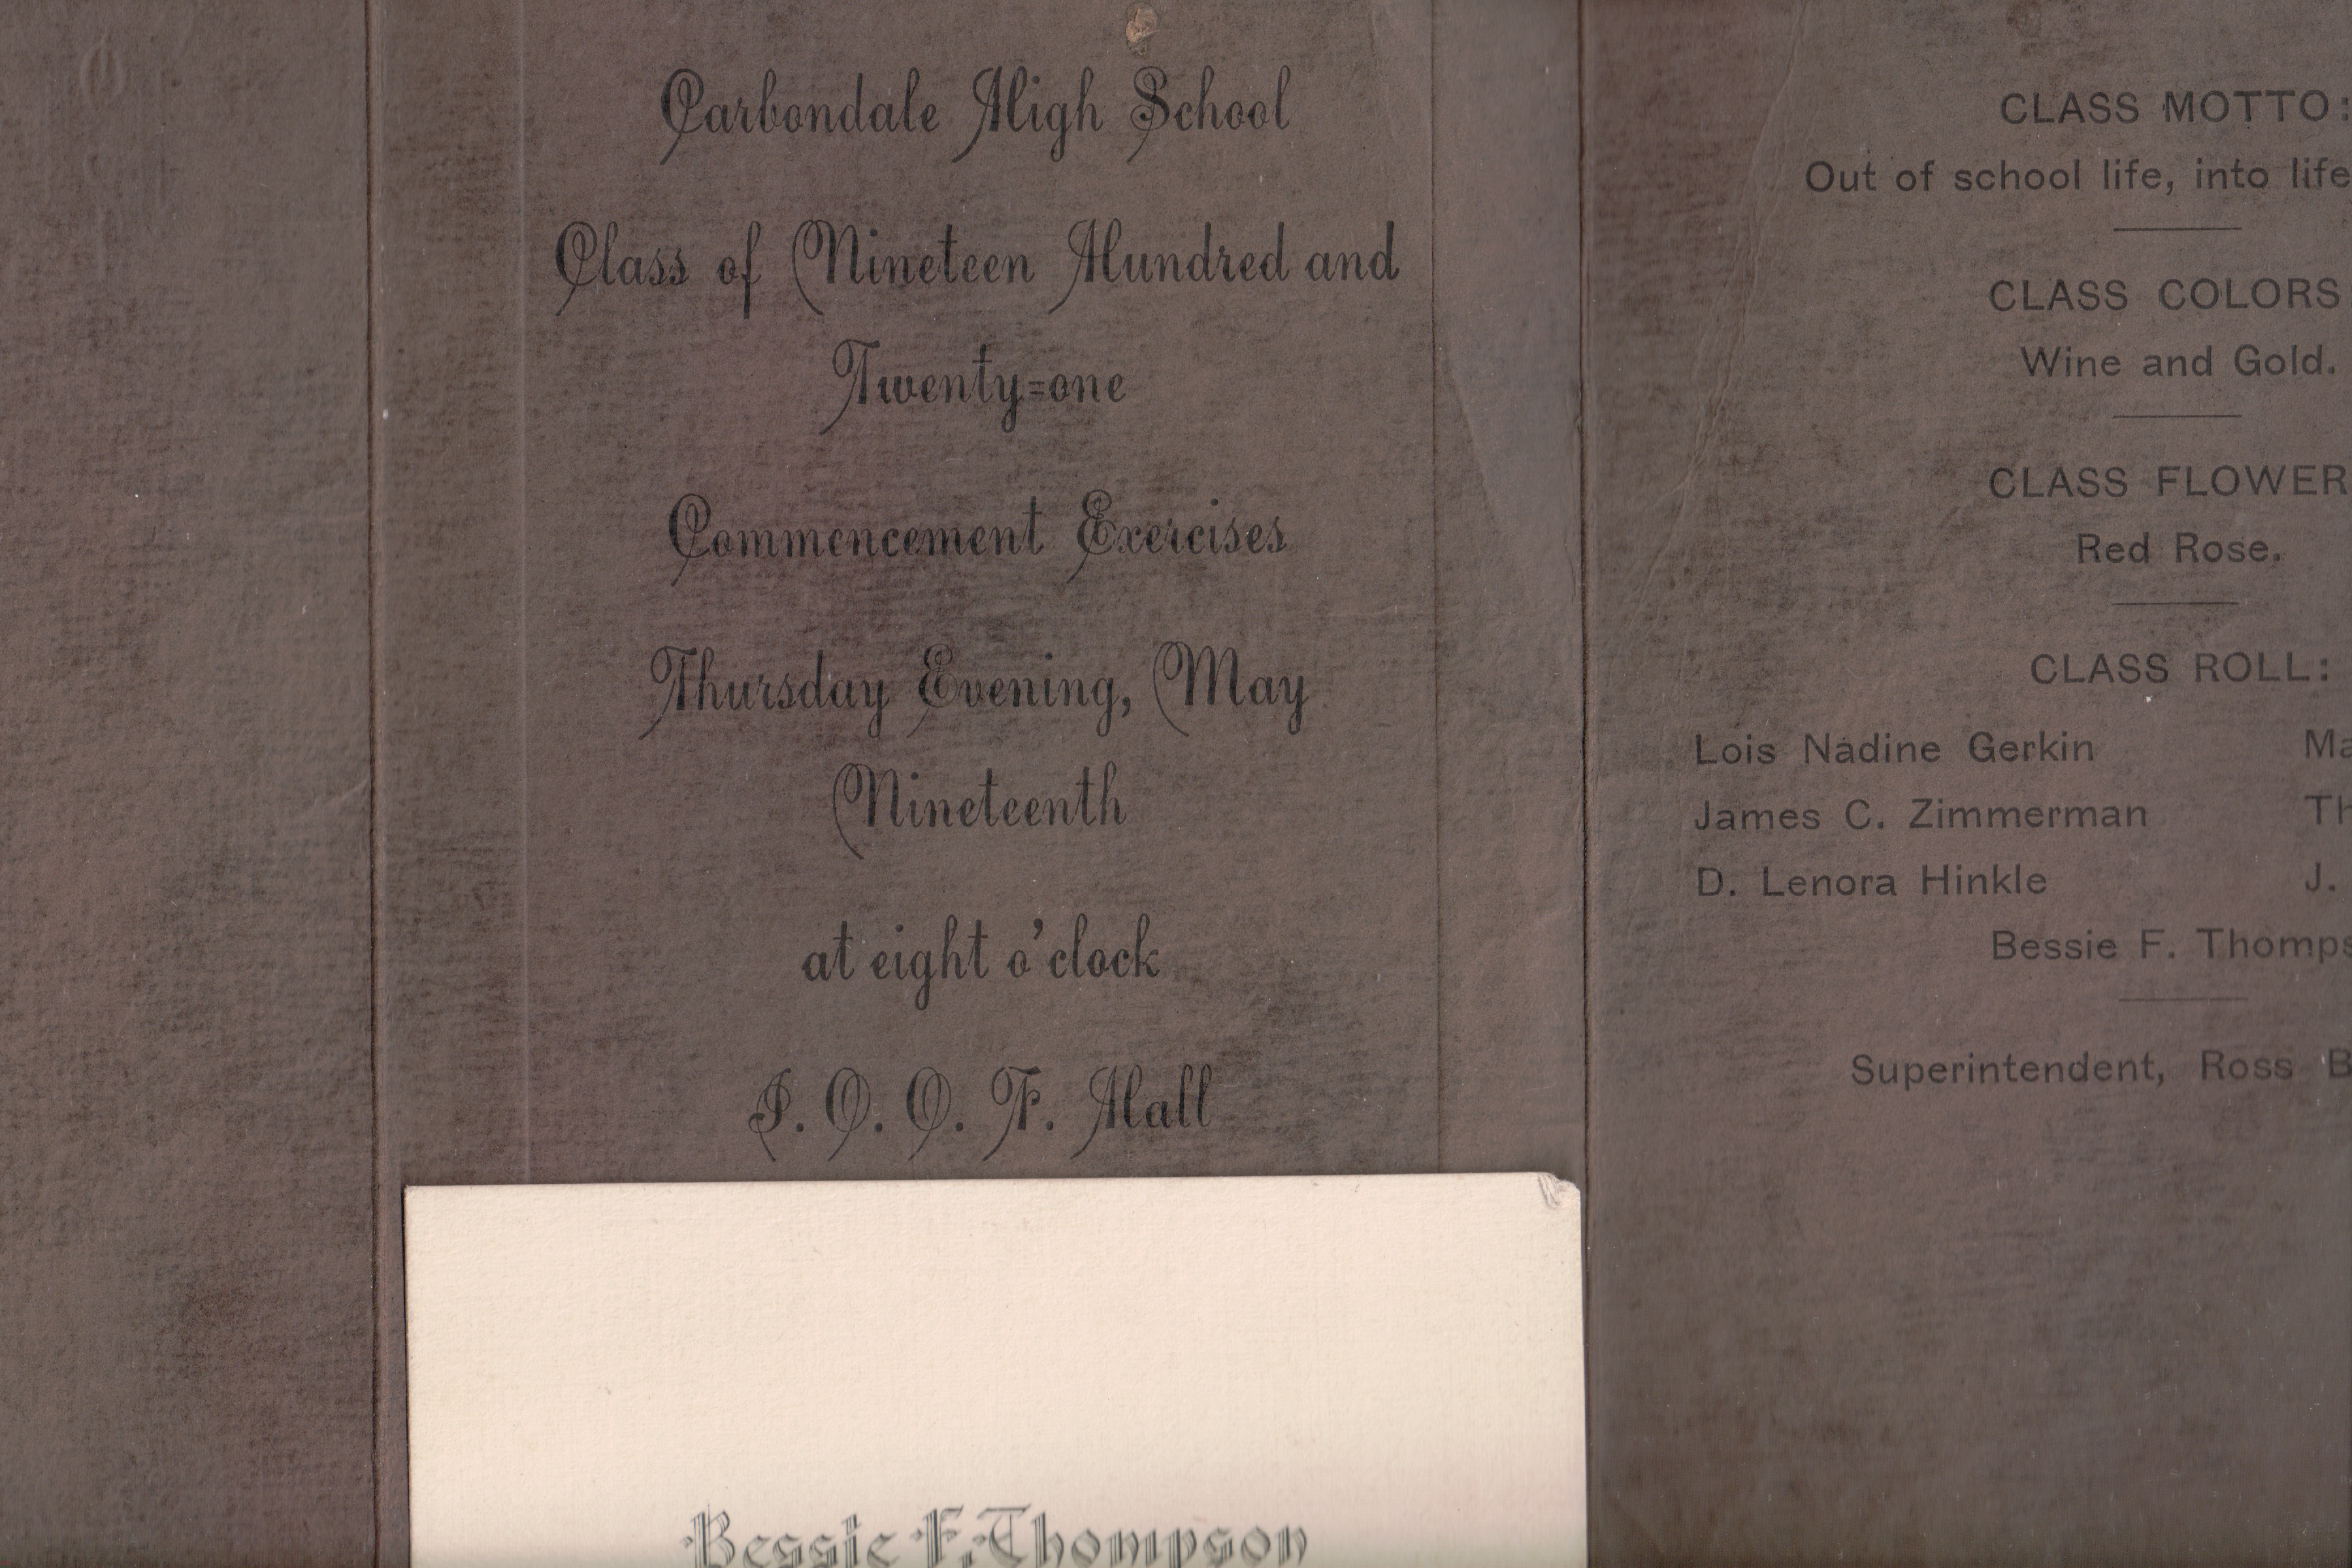 Carbondale High School
Class of Nineteen Hundred and
Twenty=one
Commencement Exercises
Thursday Evening, May
Nineteenth
at eight o'clock
I. O. O. F. Hall
Bessie F. Thompson
CLASS MOTTO:
Out of school life, into life
CLASS COLORS
Wine and Gold.
CLASS FLOWER
Red Rose.
CLASS ROLL:
Lois Nadine Gerkin
James C. Zimmerman
D. Lenora Hinkle J.
Bessie F.
Superintendent, Ross